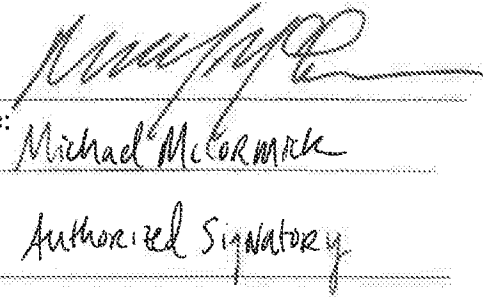 :
Michael McCormick
Authorized Signatory